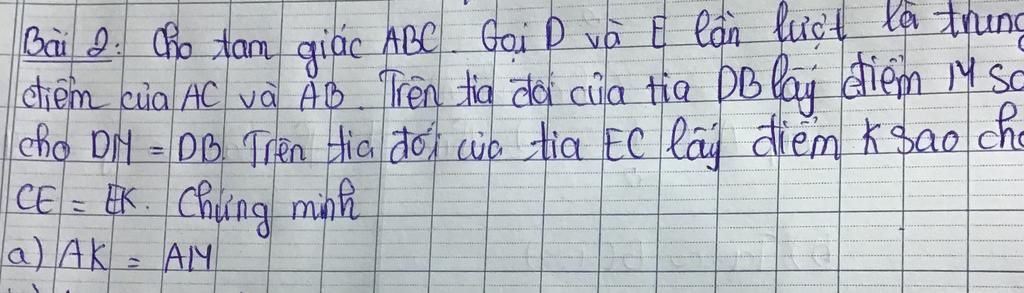 Bài 2: Cho tam giác ABC. Gọi D và E lần lượt là trung
điểm của AC và AB. Trên tia đối của tia DB lấy điểm M sao
cho DM = DB. Trên tia đối của tia EC lấy điểm K sao cho
CE = EK. Chứng minh
a) AK = AM